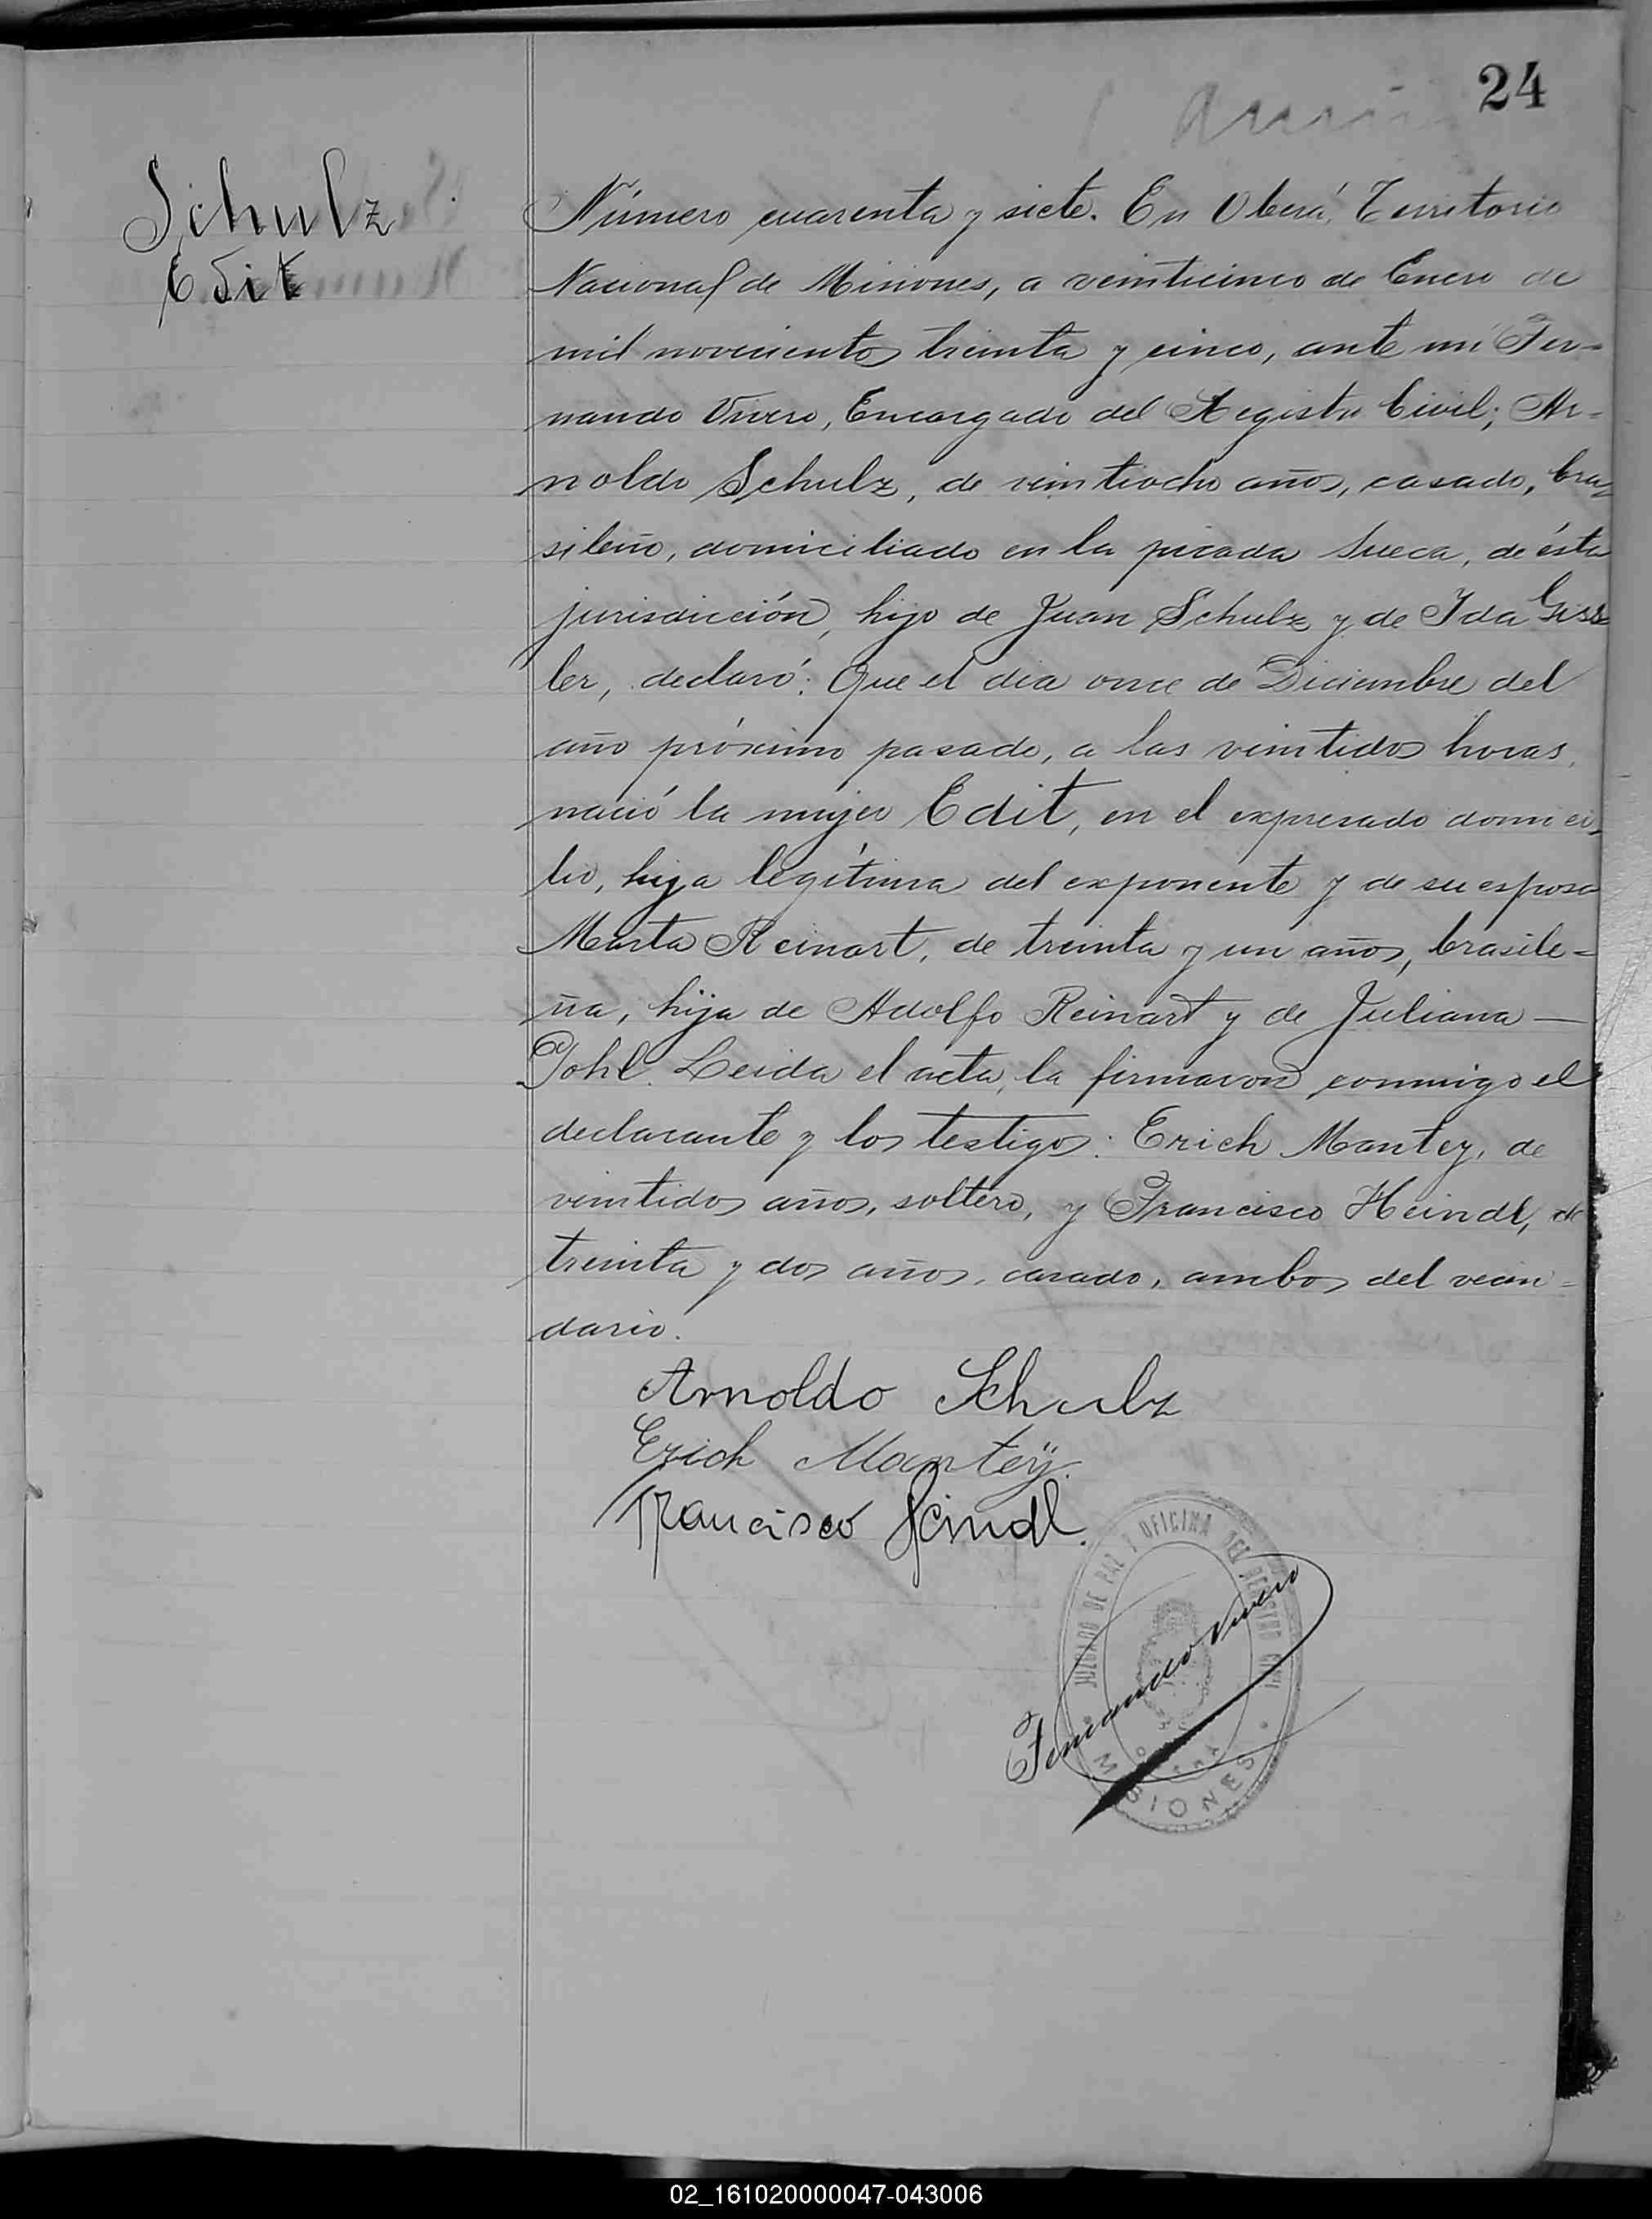 24
Schulz
Edit
Número cuarenta y siete. En Oberá, Territorio
Nacional de Misiones, a veinticinco de Enero de
mil novecientos treinta y cinco, ante mí Fer-
nando Vivero, Encargado del Registro Civil; Ar-
noldo Schulz, de veintiocho años, casado, bra-
sileño, domiciliado en la picada Sueca, de ésta
jurisdicción, hijo de Juan Schulz y de Ida
ler, declaró: Que el día once de Diciembre del
año próximo pasado, a las veintidos horas,
nació la mujer Edit, en el expresado domici-
lio, hija legítima del exponente y de su esposa
Marta Reinart, de treinta y un años, brasile-
ña, hija de Adolfo Reinart y de Juliana —
Pohl. Leida el acta, la firmaron conmigo el
declarante y los testigos: Erich Mantey, de
veintidos años, soltero, y Francisco Heindl, de
treinta y dos años, casado, ambos del vecin-
dario.
Arnoldo Schulz
Erich Mantey.
Francisco Heindl.
JUZGADO DE PAZ Y OFICINA DEL REGISTRO CIVIL
Fernando Vivero
OBERA
MISIONES
02_161020000047-043006